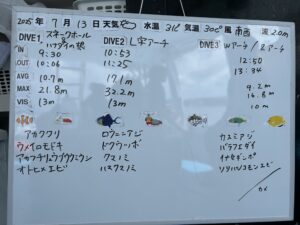 2025年 7月 13日 天気 水温 31℃ 気温 30℃ 風 南西 波 2.0m
DIVE1 スネークホール
ハナダイの根
IN 9:30
OUT 10:06
AVG 10.7m
MAX 21.8m
VIS 13m
DIVE2 L字アーチ
10:53
11:25
17.1m
32.2m
13m
DIVE3 Wアーチ/Zアーチ
12:50
13:34
9.2m
14.8m
10m
アカククリ
ウメイロモドキ
アカマチリュウグウウミウシ
オトヒメエビ
ロウニンアジ
ドクウツボ
クスノミ
ハスクスノミ
カスミアジ
バラフエダイ
イナセギンポ
ソリハシコモンエビ
カメ